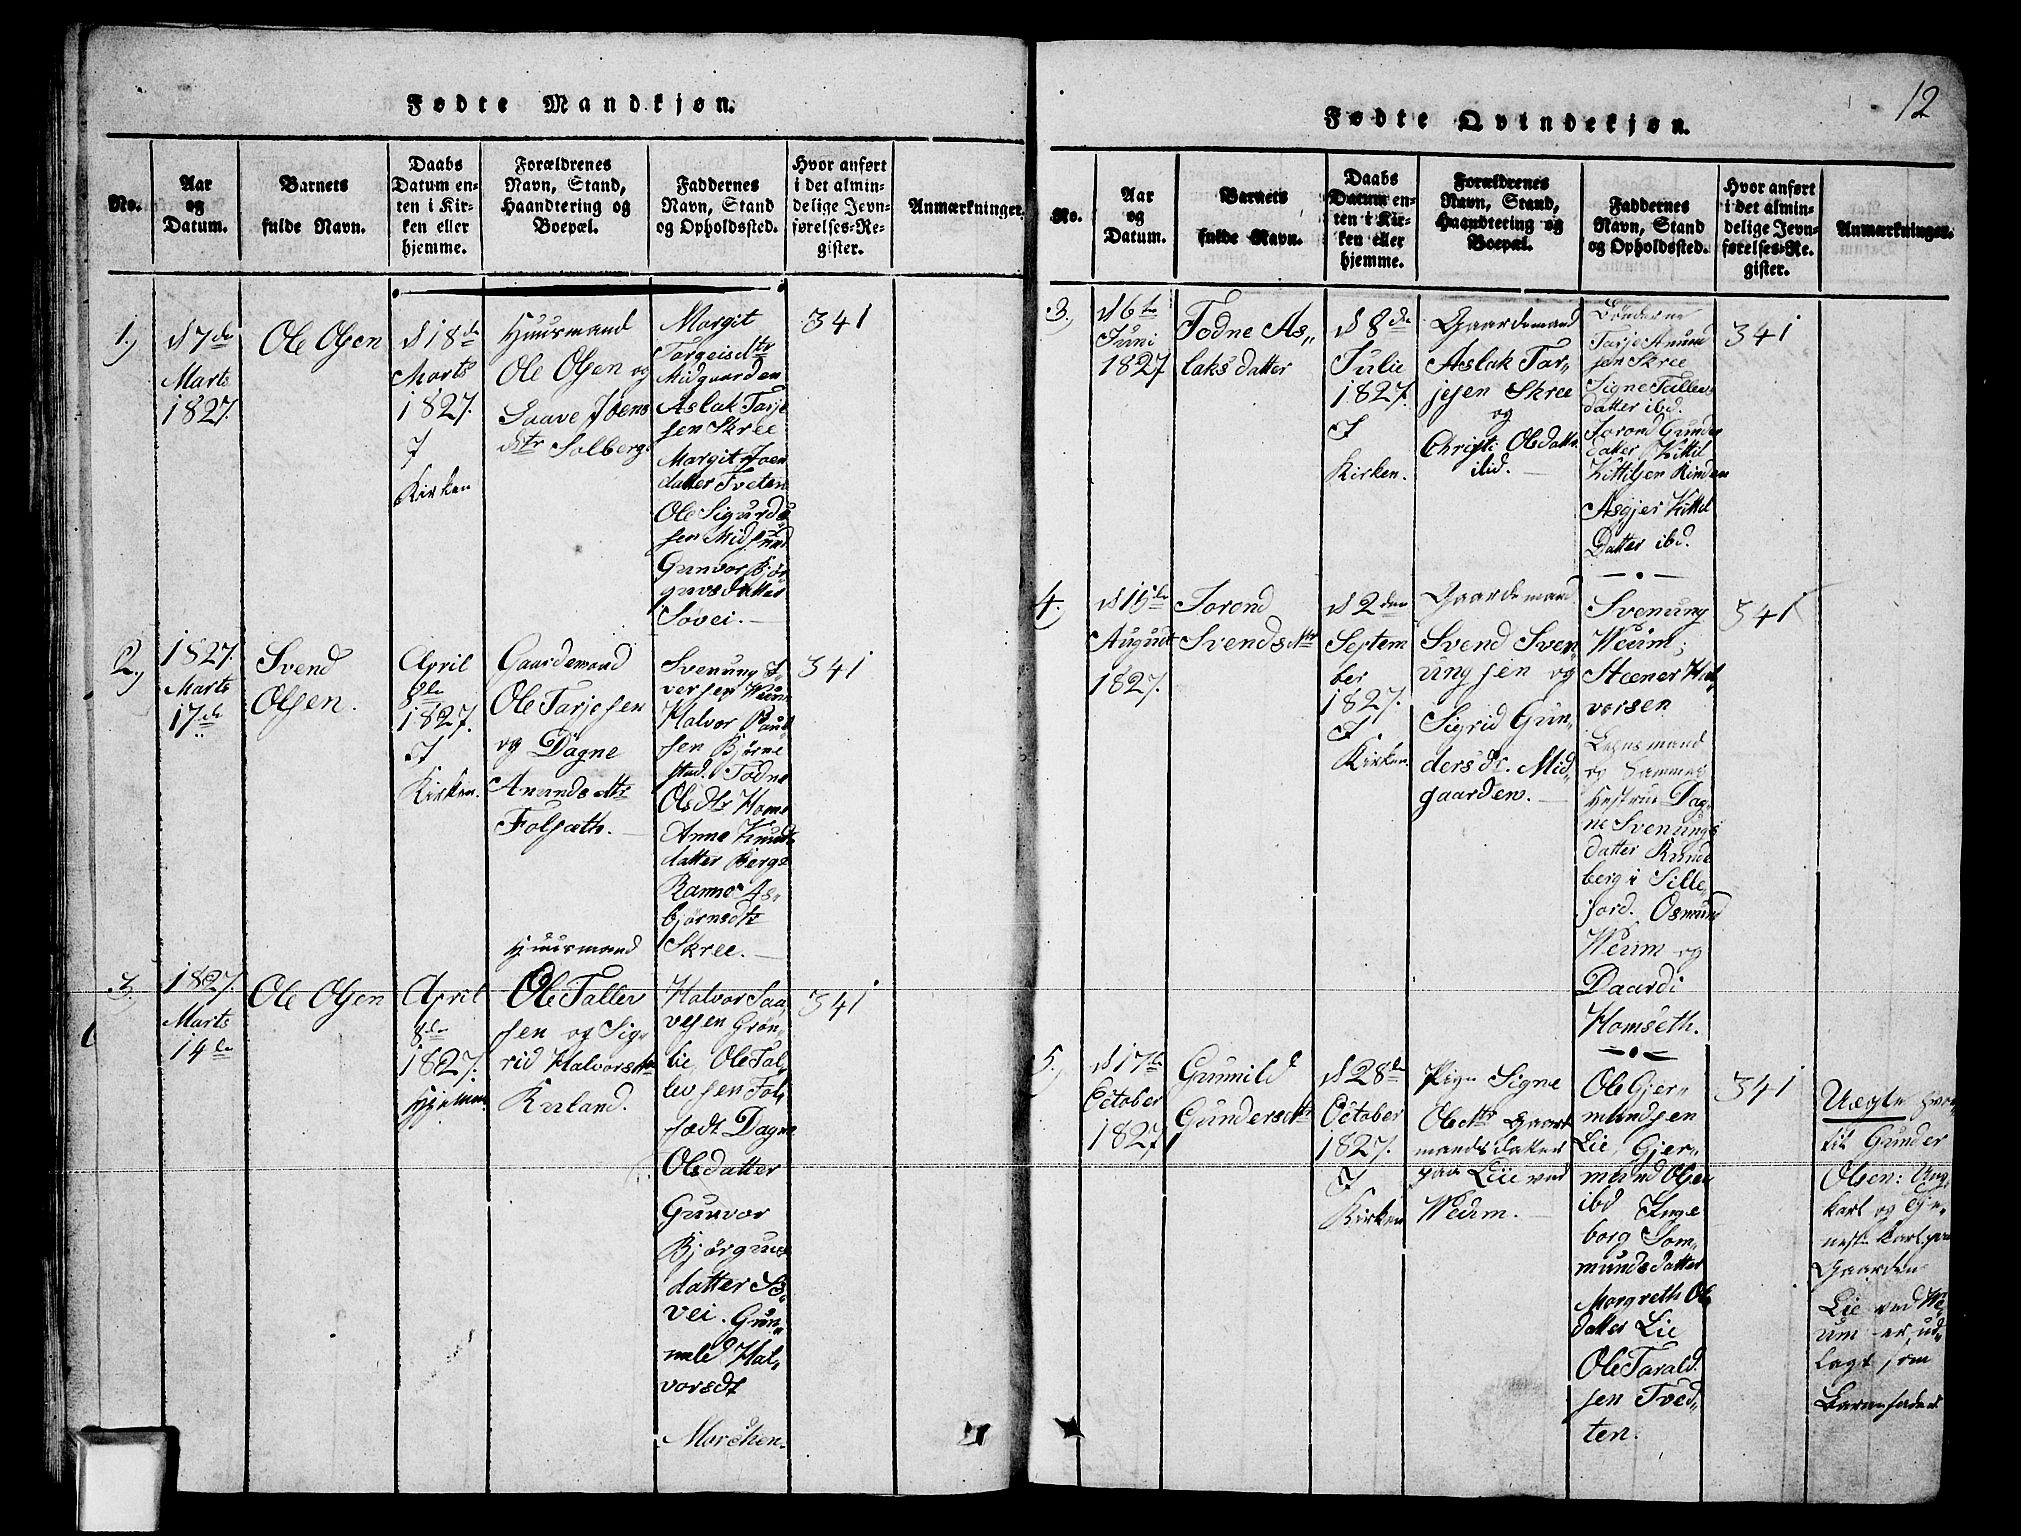 12
Fødte Mandkjøn.
No.
Aar
og
Datum.
Barnets
fulde Navn.
Daabs
Datum en-
ten i Kir-
ken eller
hjemme.
Forældrenes
Navn, Stand,
Haandtering og
Boepæl.
Faddernes
Navn, Stand
og Opholdssted.
Hvor anført
i det almin-
delige Jevn-
førelses-Re-
gister.
Anmærkninger.
1.)
d 7de
Marts
1827.
Ole Olsen
d 18de
Marts
1827.
I
Kirken
Huusmand
Ole Olsen og
Saave Joens
dtr Solberg
Margit
Targeisdtr
Midgaarden
Aslak Tarje
sen Skree
Margit Joen
datter Tveten
Ole Sigurd
sen Midsund
Gunvor Bjør
guvsdatter
Søvei.
341
2.)
1827.
Marts
17de
Svend
Olsen.
April
8de
1827.
I
Kirken.
Gaardemand
Ole Tarjesen
og Dagne
Anundsdtr
Folsæth.
Svenung S.
versen Weum
Halvor Paul
sen Bjørne
stad. Todne
Olsdtr Home
Anne Knud
datter Berge
Ranne As-
bjørnsdtr
Skree.
341
3.
1827.
Marts
14de
Ole Olsen
April
8de
1827.
Hjemme.
Huusmand
Ole Tallev
sen og Sig-
rid Halvorsdtr
Kuland.
Halvor Saa-
vesen Grøn-
lie, Ole Tal-
levsen Fol-
sædt Dagne
Olsdatter
Gunvor
Bjørguvs
datter Sø-
vei. Gun-
nild Hal-
vorsdt
Morchen.
341
Fødte Qvindekjøn.
No.
Aar
og
Datum.
Barnets
fulde Navn.
Daabs
Datum en-
ten i Kir-
ken eller
hjemme.
Forældrenes
Navn, Stand,
Haandtering og
Boepæl.
Faddernes
Navn, Stand
og Opholdssted.
Hvor anført
i det almin-
delige Jevn-
førelses-Re-
gister.
Anmærkninger.
3.)
d 6te
Juni
1827
Todne As-
laksdatter
d 8de
Julie
1827.
I
Kirken.
Gaardemand
Aslak Tar-
jesen Skree
og
Christi Olsdatter
ibid.
Bønderne
Tarje Anund
sen Skree
Signe Tallevs
datter ibd.
Torond Gunders
datter, Kittil
Kittilsen Rinden
Asgjer Kittil
Datter ibd.
341
4.)
d 15de
August
1827.
Torond
Svendsdtr
d 2den
Septem
ber
1827.
I
Kirken
Gaardemand
Svend Sven-
ungsen og
Sigrid Gun-
dersdr. Mid-
gaarden.
Svenung
Weum;
Steener Hal-
vorsen
Lehnsmand
og Sammes
Hustrue Dag-
ne Svenungs
datter Runde
berg i Sille-
jord. Osmund
Weum og
Daardi
Homseth.
341
5.)
d 17de
October
1827
Gunnild
Gundersdtr
d 28de
October
1827.
I
Kirken
Pige Signe
Olsdtr Gaard
mandsdatter
paa Lie ved
Weum.
Ole Gjer-
mundsen
Lie, Gjer-
mund Olsen
ibd Inge
borg Tom-
mundsdatter
Margreth Ols
datter Lie
Ole Tarald
sen Tved-
ten.
341
Uægte hvor-
til Gunder
Olsen: Ung-
karl og Tje-
neste Karl paa
Gaarden
Lie ved We-
um er ud-
lagt som
Barnefader